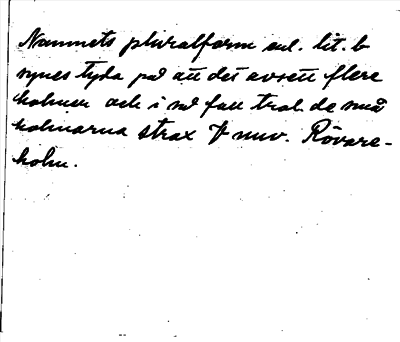 Namnets pluralform enl. lit. b
synes tyda på att det avsett flere
holmar och i så fall trol. de små
holmarna strax V nuv. Rövare-
holm.